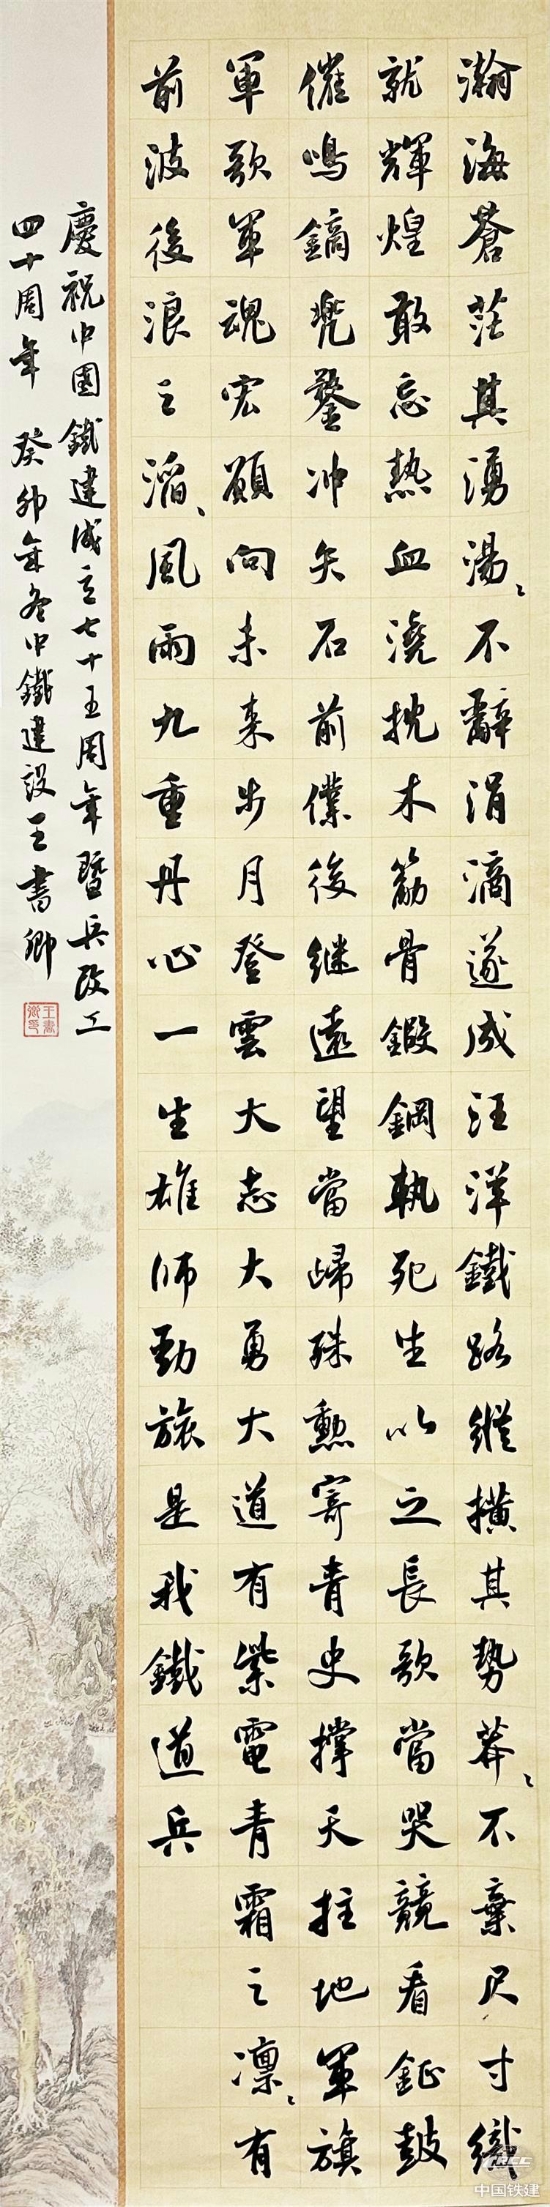 瀚海蒼茫其湧湯〻不辭涓滴遂成汪洋鐵路縱橫其勢莽〻不棄尺寸織
就輝煌敢忘熱血澆枕木筋骨鍛鋼執死生以之長歌當哭競看鉦鼓
催鳴鏑兜鍪冲矢石前僕後継遠望當歸殊勳寄青史撑天拄地軍旗
軍歌軍魂宏願向未来步月登雲大志大勇大道有紫電青霜之凛〻有
前波後浪之滔〻風雨九重丹心一生雄師勁旅是我鐵道兵
慶祝中國鐵建成立七十五周年暨兵改工
四十周年 癸卯年冬中鐵建設王書卿
王書卿印
CRCC
中国铁建